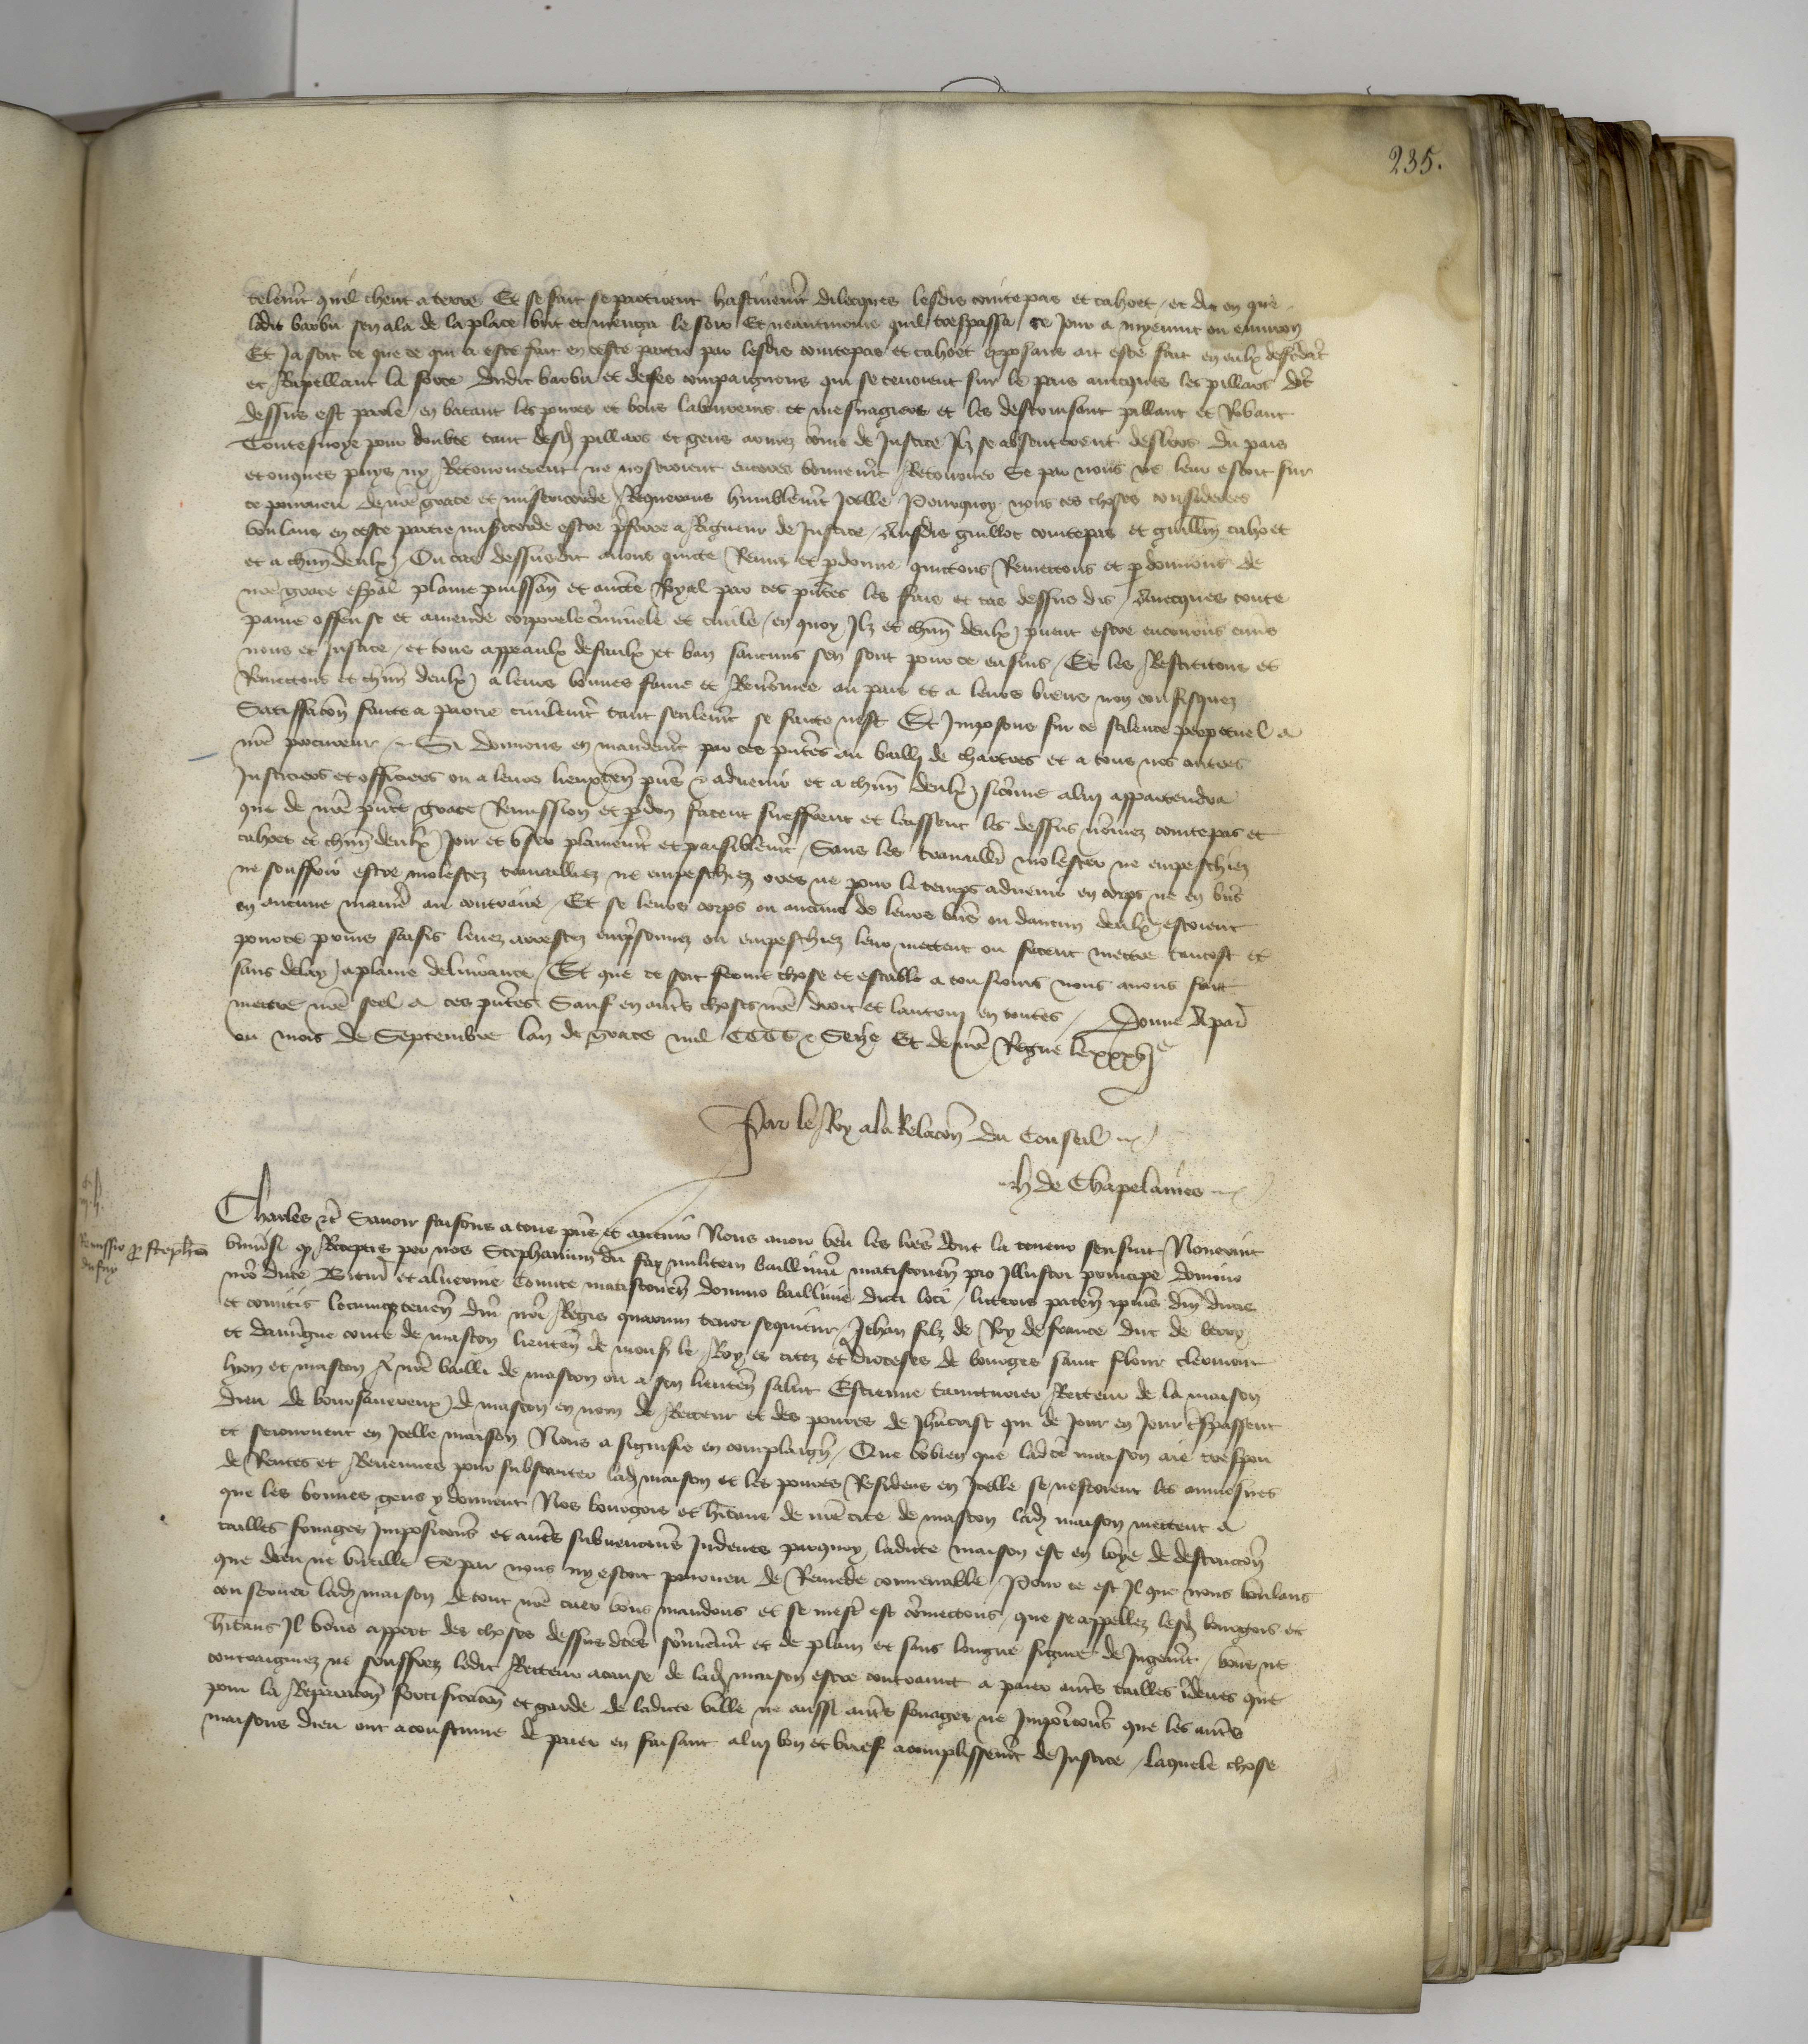 235.
telemt quil cheut a terre Et se fait se partirent hastivemt dilecques lesdis contepas et cahoet / et dit en que
ledit barbu sen ala de la place but et menga le soir Et neantmoins quil trespassa ce jour a myenuit ou environ
Et Ja soit ce que ce qui a este fait en ceste partie par lesdis contepas et cahoet exposans ait este fait en eulx defendat
et Rapellant la force dudit barbu et de ses compaignons qui se tenoient sur le pais avecques les pillars dot
dessus est parle / en batant les povres et bons laboureurs et mesnagiers et les destroussant pillant et Robant
Toutesvoye pour doubte tant desd pillars et gens armez come de Justice Ilz se absenterent deslors du pais
et onques puys ny Retournerent ne noseroient encores bonnemt Retourner Se par nous ne leur estoit sur
ce pourveu de nre grace et misericorde / Requerans humblemt Icelle Pourquoy nous ces choses considerees
voulans en ceste partie misericorde estre preferee a Rigueur de Justice / Ausdis guillot contepas et guillin cahoet
et a chun deulx / Ou cas dessusdit avons quitte Remis et pdonne quittons Remettons et pdonnons de
nre grace espal plaine puissan et aucte Royal par ces pntes les fais et cas dessus dis / Avecques toute
paine offense et amende corporele criminele et civile / en quoy Ilz et chun deulx puent estre encourus envs
nous et Justice / et tous appeaulx defaulx et ban saucuns sen sont pour ce ensuis / Et les Restituons et
Remettons et chun deulx a leurs bonnes fame et Renomee au pais et a leurs biens non confisquez
Satisfacon faicte a partie civilemt tant seulemt se faicte nest Et Imposons sur ce silence perpetuel a
nre procureur / Si donnons en mandemt par ces pntes au bailly de chartres et a tous nos autres
Justiciers et officiers ou a leurs lieuxten pns & advenir et a chun deulx sicome a luy appartendra
que de nre pnte grace Remission et pdon facent sueffrent et laissent les dessus nomez contepas et
cahoet et chun deulx Joir et user plainemt et paisiblemt / Sans les travaillr molester ne empeschier
ne souffrir estre molestez travailliez ne empeschiez ores ne pour le temps advenir en corps ne en bns
en aucune manie au contraire / Et se leurs corps ou aucuns de leurs bns ou daucun deulx estoient
pour ce prins saisis levez arrestez emprisonnez ou empeschiez leur mettent ou facent mettre tantost et
sans delay a plaine delivrance / Et que ce soit ferme chose et estable a tousiours nous avons fait
mettre nre seel a ces pntes Sauf en auts choses nre droit et lautruy en toutes / Donne A paris
ou mois de Septembre lan de grace mil CCCC & Seize Et de nre Regne le xxxvj e
Par le Roy a la Relacon du Conseil
h de Chapelaines
Remissio p Stephano
du fay
Charles etc Savoir faisons a tous pns et avenir Nous avoir veu les lres dont la teneur sensuit Noverint
universi q Receptis per nos Stephanum du fay militem baillivum matisconen pro Illustri principe domino
nro duce Bituri et alvernie Comite matisconen domino baillivie dicti loci / litteris paten ipius dni ducis
et comitis locumqz tenen dni nri Regis quarum tenor sequitur / Jehan filz de Roy de france duc de berry
et dauvgne conte de mascon lieuten de mons le Roy es citez et dioceses de bourges saint flour clermont
lyon et mascon A nre bailli de mascon ou a son lieuten salut Estienne Recteur de la maison
dieu de boursauvereux de mascon en nom de Recteur et des povres de Jhucrist qui de Jour en Jour trespassent
et seiournent en Icelle maison Nous a signifie en complaign / Que combien que ladte maison aie tres pou
de Rentes et Revenues pour substanter lad maison et les povres Residens en Icelle se nestoient les aumosnes
que les bonnes gens y donnent Nos bourgois et hitans de nre cite de mascon lad maison mettent a
tailles fouages Imposicons et auts subvencions Indeues parquoy ladicte maison est en voye de destruction
que dieu ne vueille Se par nous ny estoit pourveu de Remede convenable / Pour ce est Il que nous voulans
conserver lad maison de tout nre cuer vous mandons et se mest est comettons / que se appellez lesd bourgois et
hitans Il vous appert des choses dessus dces somieremt et de plain et sans longue figure de Jugemt / vous ne
contraignez ne souffrez ledit Recteur a cause de lad maison estre contraint a paier auts tailles Indeues que
pour la Repparacon fortificacon et garde de ladicte ville ne aussi auts fouages ne Imposicons que les auts
maisons dieu ont acoustume de paier en faisant a luy bon et brief acomplissemt de Justice / laquele chose